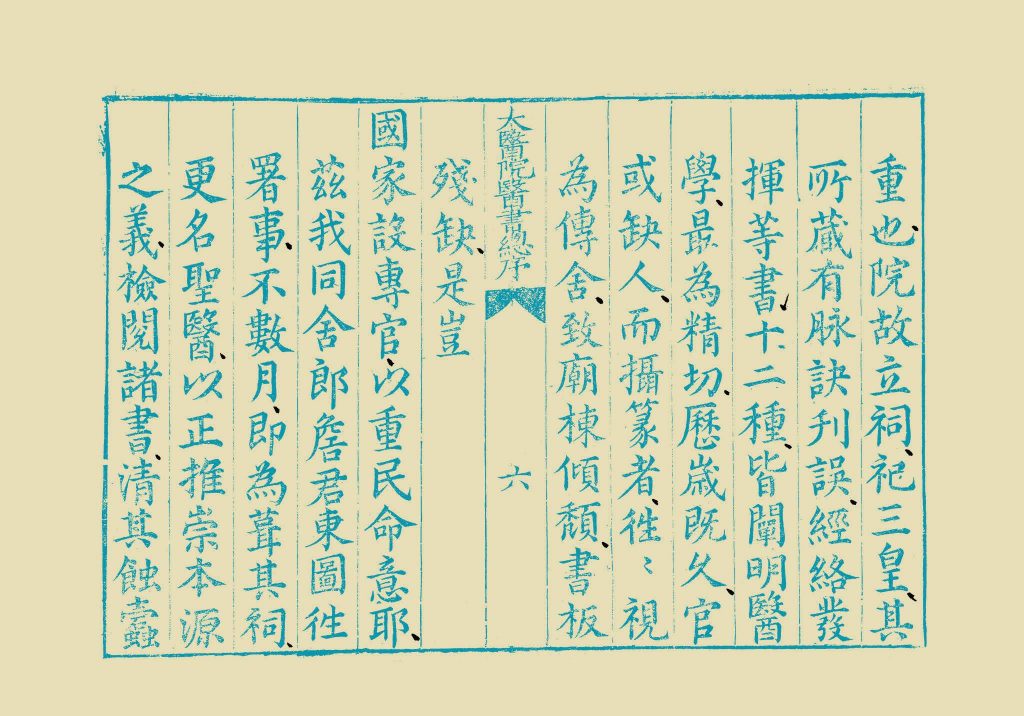 重也院故立祠祀三皇其
所蔵有脉訣刋誤經絡發
揮等書十二種皆闡明醫
學最為精切歷嵗既久官
或缺人而攝篆者徃〻視
為傳舍致廟棟傾頽書板
太醫院醫書總序
六
殘缺是豈
國家設專官以重民命意耶
茲我同舍郎詹君東圖徃
署事不數月即為葺其祠
更名聖醫以正推崇本源
之義檢閱諸書清其蝕蠹